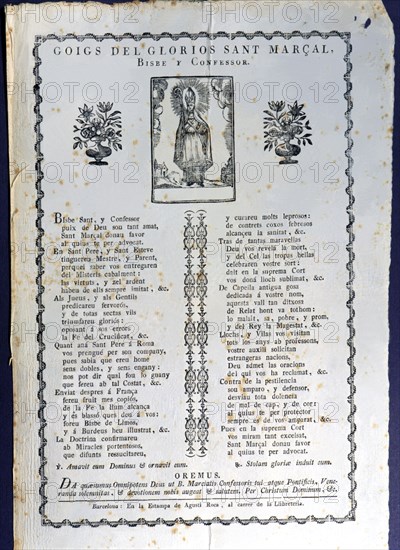 GOIGS DEL GLORIOS SANT MARÇAL,
BISBE Y CONFESSOR.
Bisbe Sant, y Confessor
puix de Deu sou tant amat,
Sant Marçal donau favor
al quius te per advocat.
En Sant Pere, y Sant Esteve
tinguereu Mestre, y Parent,
perquei saber vos entregaren
del Misteris cabalment:
las virtuts, y zel ardent
habeu de ells sempre imitat, &c.
Als Jueus, y als Gentils
predicareu fervorós,
y de totas sectas vils
triunfareu gloriós:
oposant á sos errors
la Fe del Crucificat, &c.
Quant aná Sant Pere á Roma
vos prengué per son company,
pues sabia que ereu home
sens dobles, y sens engany:
nos pot dir qual fou lo guany
que fereu ab tal Costat, &c.
Enviat despres á França
fereu fruit mes copiós,
de la Fe la llum alcança
y de blassó qui donà á vos:
foreu Bisbe de Limos,
y á Burdeus heu illustrat, &c.
La Doctrina confirmareu
ab Miracles portentosos,
que difunts ressucitareu,
y curareu molts leprosos:
de contrets coxos febrosos
alcançeu la sanitat, &c.
Tras de tantas maravellas
Deu vos revela la mort,
y del Cel las tropas bellas
celebraren vostre sort:
dait en la suprema Cort
vos doná lloch sublimat, &c.
De Capella antigua gosa
dedicada á vostre nom,
aquesta vall tan ditxosa
de Relat hont va tothom:
lo malalt, sa, pobre, y prom,
y del Rey la Magestat, &c.
Llochs, y Vilas vos visitan
tots los anys ab professons,
vostre auxili solicitan
estrangeras nacions,
Deu admet las oracions
del qui vos ha reclamat, &c.
Contra de la pestilencia
sou amparo, y defensor,
desviau tota dolencia
de mal de cap, y de cor:
al quius te per protector
sempre es de vos amparat, &c.
Pues en la suprema Cort
vos miram tant exceixat,
Sant Marçal donau favor
al quius te per advocat.
℣. Amavit eum Dominus & ornavit eum.
℟. Stolam gloriæ induit eum.
OREMUS.
DA quæsumus Omnipotens Deus ut B. Martialis Confessoris tui atque Pontificis, Vene-
randa solemnitas, & devotionem nobis augeat & salutem. Per Christum Dominum, &c.
Barcelona: En la Estampa de Agustí Roca, al carrer de la Llibreteria.
PHOTO12